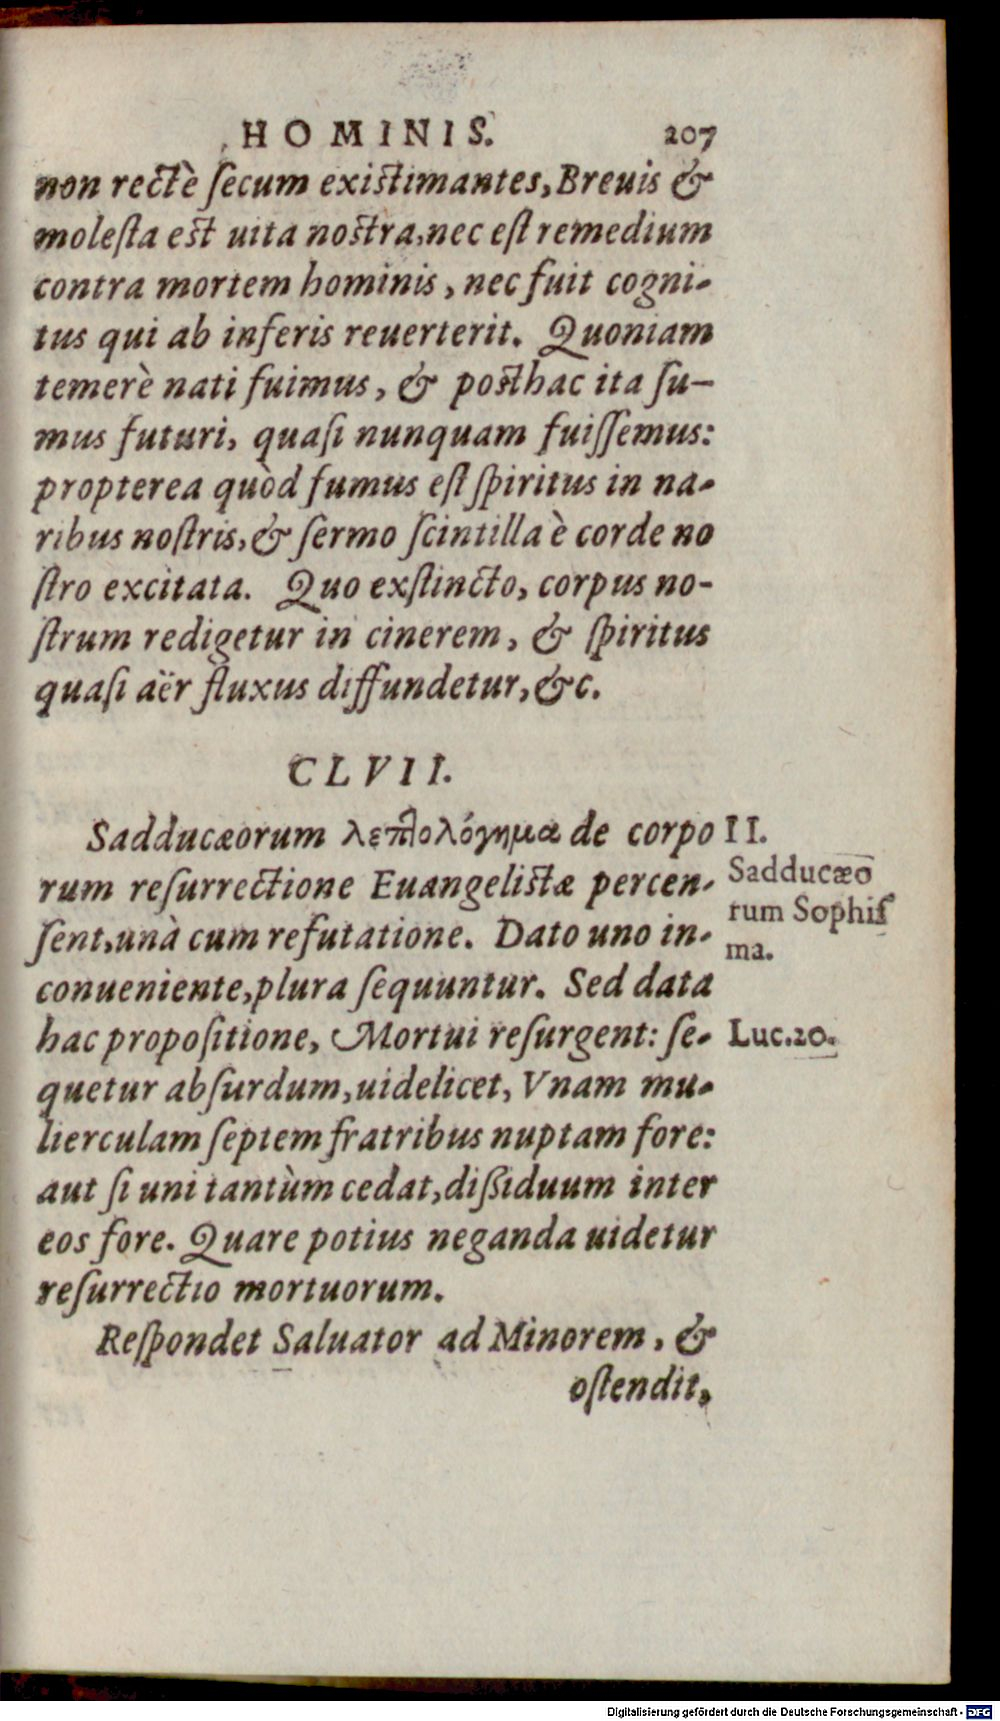 HOMINIS. 207
non rectè ſecum exiſtimantes, Breuis &
moleſta eſt uita noſtra, nec eſt remedium
contra mortem hominis, nec fuit cogni-
tus qui ab inferis reuerterit. Quoniam
temerè nati fuimus, & poſthac ita ſu-
mus futuri, quaſi nunquam fuiſſemus:
propterea quòd fumus eſt ſpiritus in na-
ribus noſtris, & ſermo ſcintilla è corde no
ſtro excitata. Quo exſtincto, corpus no-
ſtrum redigetur in cinerem, & ſpiritus
quaſi aër fluxus diffundetur, &c.
CLVII.
Sadducæorum λεπτολόγημα de corpo
rum reſurrectione Euangeliſtæ percen-
ſent, unà cum refutatione. Dato uno in-
conueniente, plura ſequuntur. Sed data
hac propoſitione, Mortui reſurgent: ſe-
quetur abſurdum, uidelicet, Vnam mu-
lierculam ſeptem fratribus nuptam fore:
aut ſi uni tantùm cedat, dißiduum inter
eos fore. Quare potius neganda uidetur
reſurrectio mortuorum.
Reſpondet Saluator ad Minorem, &
oſtendit,
II.
Sadducæo
rum Sophiſ
ma.
Luc.20.
Digitalisierung gefördert durch die Deutsche Forschungsgemeinschaft - DFG